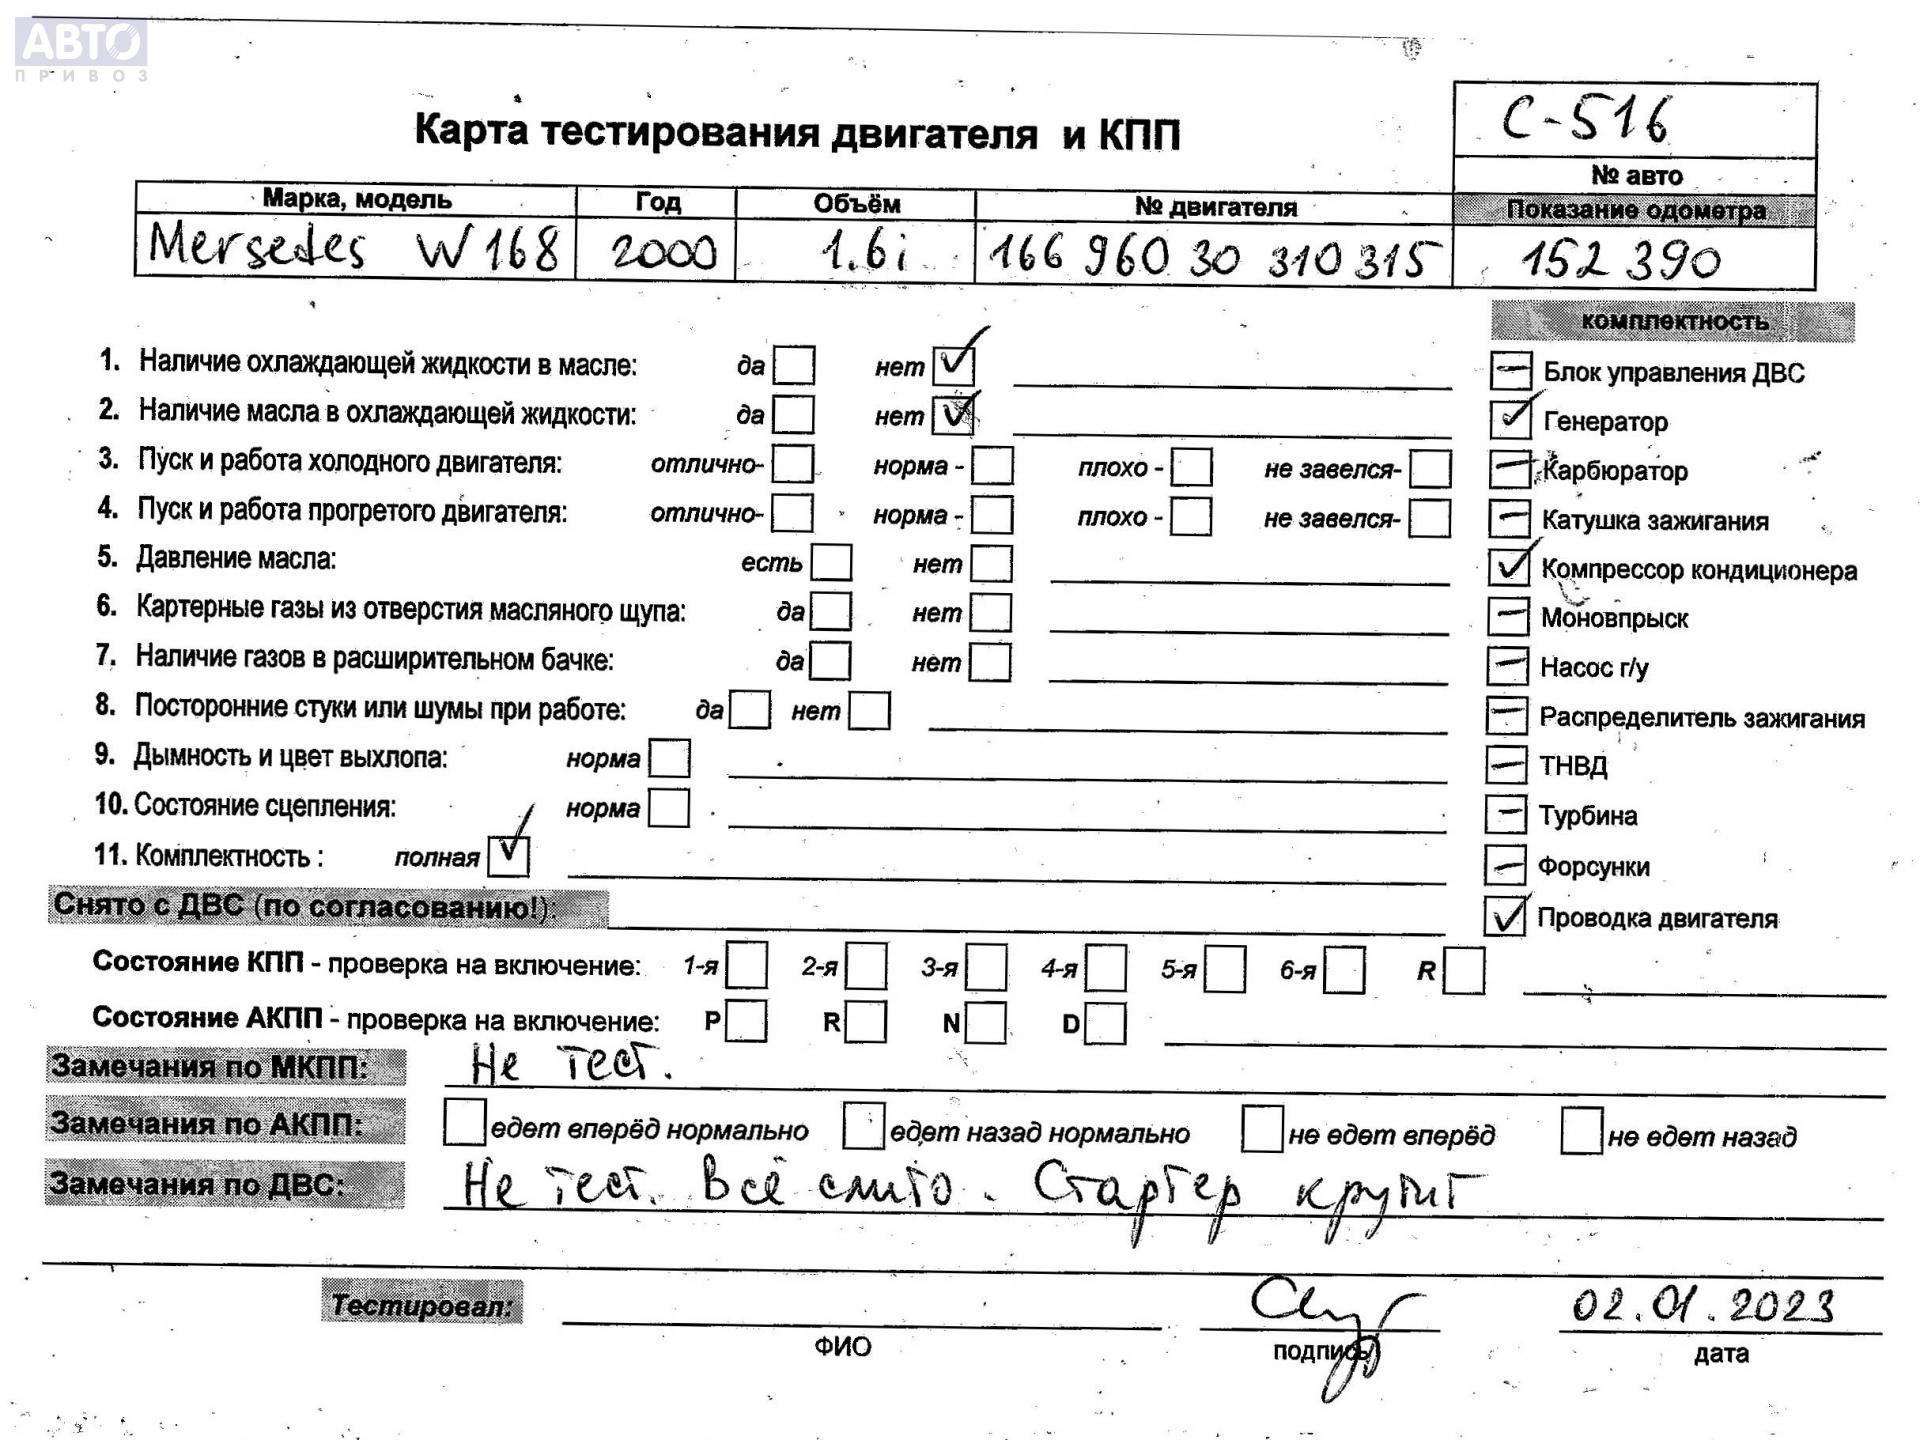 АВТО
ПРИВОЗ
Карта тестирования двигателя и КПП
С-516
№ авто
Марка, модель Год Объём № двигателя Показание одометра
Mersedes W168 2000 1.6i 166 960 30 310 315 152 390
комплектность
1. Наличие охлаждающей жидкости в масле: да нет ✓
2. Наличие масла в охлаждающей жидкости: да нет ✓
3. Пуск и работа холодного двигателя: отлично- норма - плохо - не завелся-
4. Пуск и работа прогретого двигателя: отлично- норма - плохо - не завелся-
5. Давление масла: есть нет
6. Картерные газы из отверстия масляного щупа: да нет
7. Наличие газов в расширительном бачке: да нет
8. Посторонние стуки или шумы при работе: да нет
9. Дымность и цвет выхлопа: норма
10. Состояние сцепления: норма
11. Комплектность : полная ✓
– Блок управления ДВС
✓ Генератор
– Карбюратор
– Катушка зажигания
✓ Компрессор кондиционера
– Моновпрыск
– Насос г/у
– Распределитель зажигания
– ТНВД
– Турбина
– Форсунки
✓ Проводка двигателя
Снято с ДВС (по согласованию!):
Состояние КПП - проверка на включение: 1-я 2-я 3-я 4-я 5-я 6-я R
Состояние АКПП - проверка на включение: P R N D
Замечания по МКПП: Не тест.
Замечания по АКПП: едет вперёд нормально едет назад нормально не едет вперёд не едет назад
Замечания по ДВС: Не тест. Всё слито. Стартер крутит
Тестировал: 02.01.2023
ФИО подпись дата